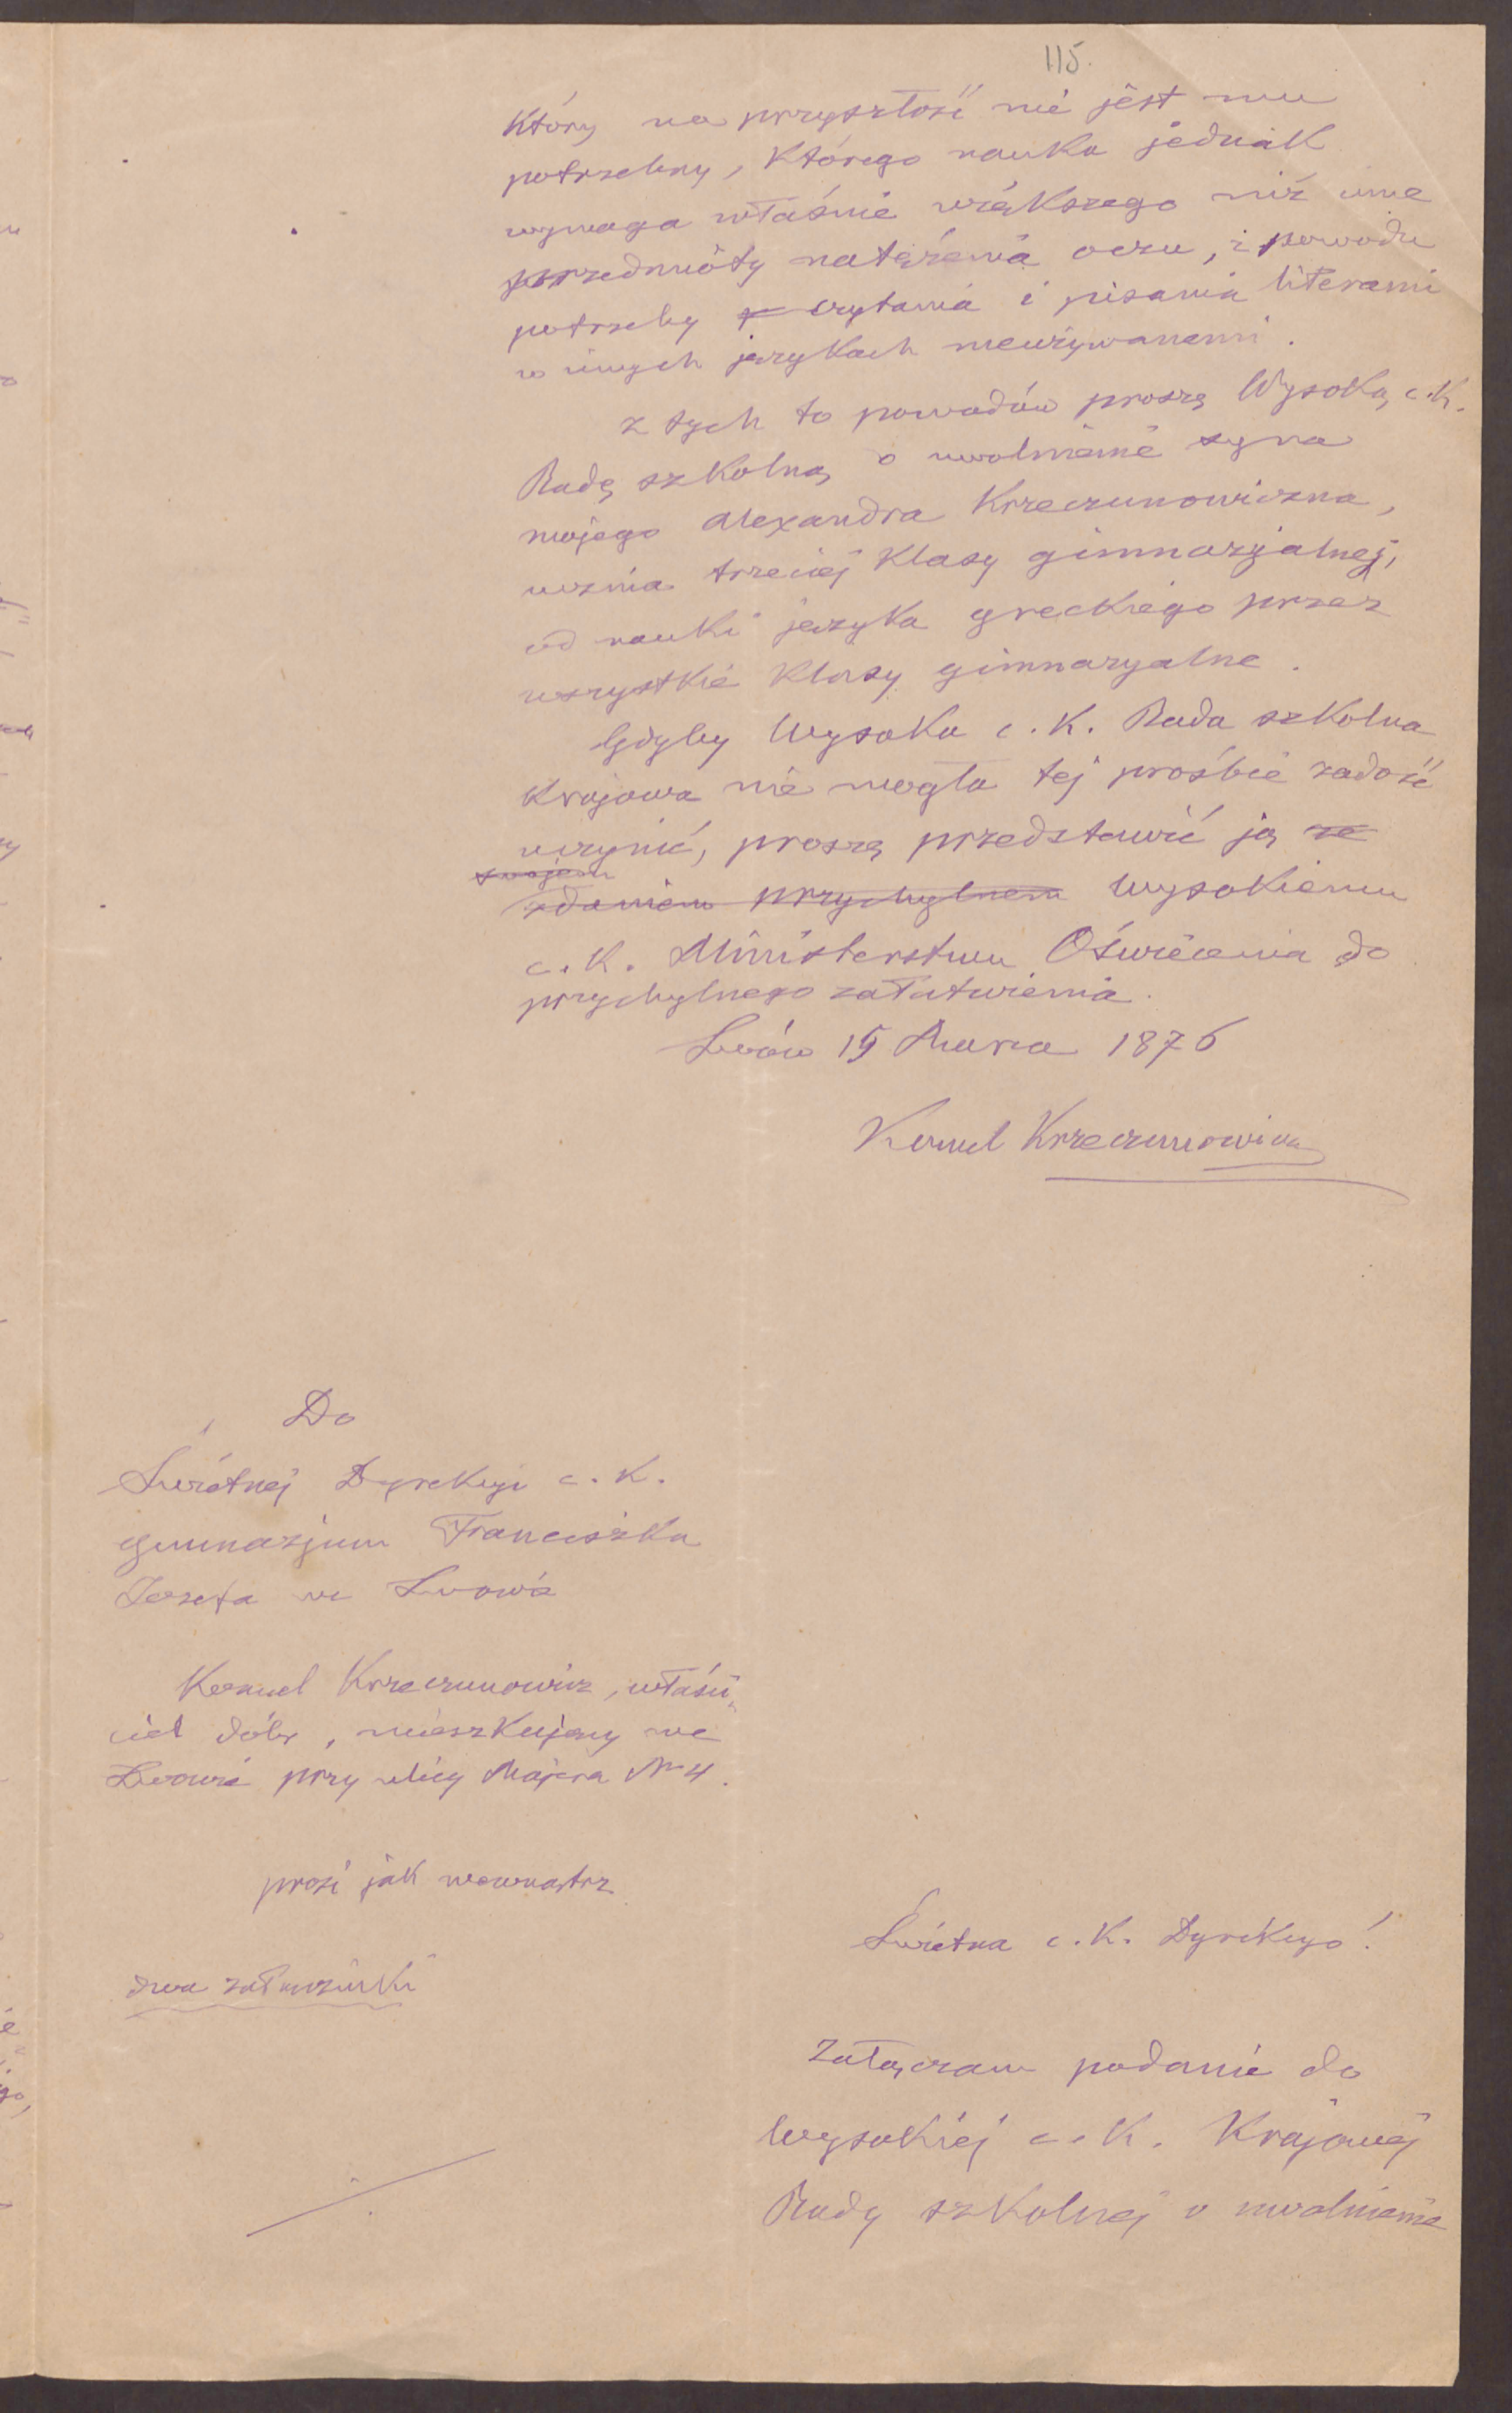 115.
który na przyszłość nie jest mu
potrzebny, którego nauka jednak
wymaga właśnie większego niż inne
przedmioty natężenia oczu, z powodu
potrzeby czytania i pisania literami
w innych językach nieużywanemi.
Z tych to powodów proszę Wysoką c. k.
Radę szkolną o uwolnienie syna
mojego Alexandra Krzeczunowicza,
ucznia trzeciej klasy gimnazyalnej,
od nauki języka greckiego przez
wszystkie klasy gimnazyalne.
Gdyby Wysoka c. k. Rada szkolna
krajowa nie mogła tej prośbie zadość
uczynić, proszę przedstawić ją ze
swojem
zdaniem przychylnem Wysokiemu
c. k. Ministerstwu Oświecenia do
przychylnego załatwienia.
Lwów 15 Marca 1876
Kornel Krzeczunowicz
Do
Świetnej Dyrekcyi c. k.
gimnazjum Franciszka
Józefa we Lwowie
Kornel Krzeczunowicz, właści„
ciel dóbr, mieszkujący we
Lwowie przy ulicy Majera Nr 4.
prosi jak wewnątrz
dwa załączniki
Świetna c. k. Dyrekcyo!
Załączam podanie do
Wysokiej c. k. Krajowej
Rady szkolnej o uwolnienie